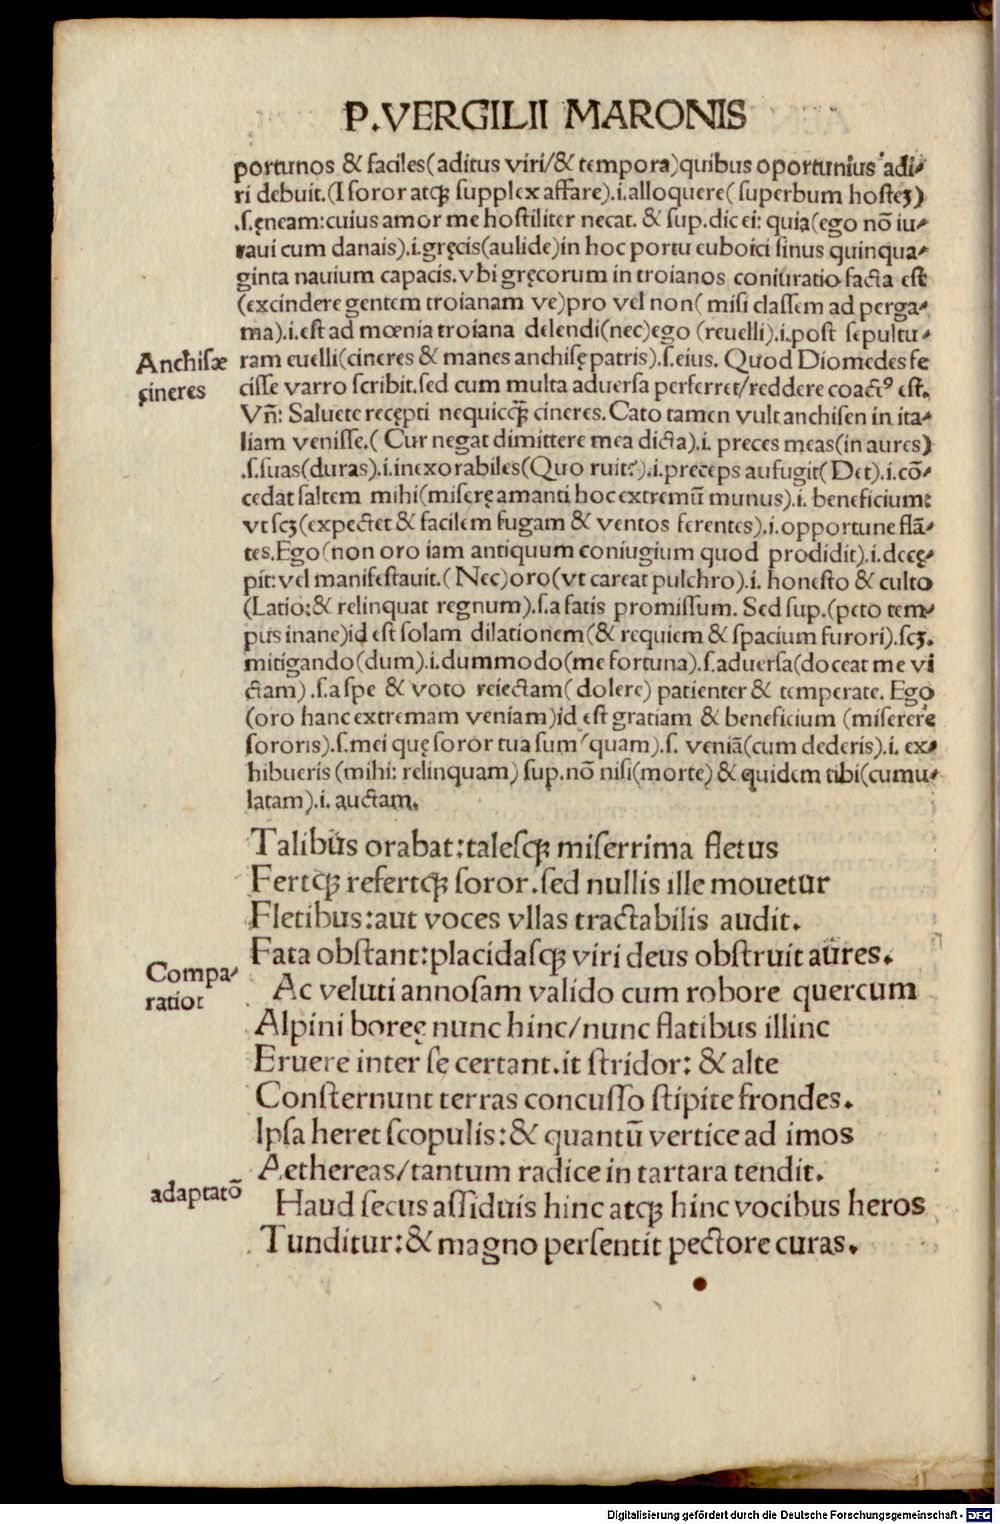 P.VERGILII MARONIS
portunos & faciles(aditus viri/& tempora)quibus oportunius adi-
ri debuit.(I soror atqꝫ supplex affare).i.alloquere(superbum hosteꝫ)
.s.ęneam:cuius amor me hostiliter necat. & sup.dic ei: quia(ego nō iu-
raui cum danais).i.gręcis(aulide)in hoc portu euboici sinus quinqua-
ginta nauium capacis.vbi gręcorum in troianos coniuratio facta est
(excindere gentem troianam ve)pro vel non(misi classem ad perga-
ma).i.est ad mœnia troiana delendi(nec)ego (reuelli).i.post sepultu-
Anchisæ
cineres
ram euelli(cineres & manes anchisę patris).s.eius. Quod Diomedes fe
cisse varro scribit.sed cum multa aduersa perferret/reddere coactꝰ est.
Vn̄: Saluete recępti nequicꝗ̄ cineres.Cato tamen vult anchisen in ita-
liam venisse.(Cur negat dimittere mea dicta).i. preces meas(in aures)
.s.suas(duras).i.inexorabiles(Quo ruit?).i.pręceps aufugit(Det).i.cō-
cedat saltem mihi(miserę amanti hoc extremū munus).i. beneficium:
vt scꝫ(expectet & facilem fugam & ventos ferentes).i.opportune flā-
tes.Ego(non oro iam antiquum coniugium quod prodidit).i.decę-
pit:vel manifestauit.(Nec)oro(vt careat pulchro).i. honesto & culto
(Latio:& relinquat regnum).s.a fatis promissum. Sed sup.(peto tem-
pus inane)id est solam dilationem(& requiem & spacium furori).scꝫ.
mitigando(dum).i.dummodo(me fortuna).s.aduersa(doceat me vi
ctam).s.a spe & voto reiectam(dolere) patienter & temperate. Ego
(oro hanc extremam veniam)id est gratiam & beneficium (miserere
sororis).s.mei quę soror tua sum(quam).s. veniā(cum dederis).i. ex-
hibueris (mihi: relinquam) sup.nō nisi(morte) & quidem tibi(cumu-
latam).i. auctam.
Talibus orabat:talesqꝫ miserrima fletus
Fertqꝫ refertqꝫ soror.sed nullis ille mouetur
Fletibus:aut voces vllas tractabilis audit.
Fata obstant:placidasqꝫ viri deus obstruit aures.
Compa-
ratiot
Ac veluti annosam valido cum robore quercum
Alpini boreę nunc hinc/nunc flatibus illinc
Eruere inter se certant.it stridor: & alte
Consternunt terras concusso stipite frondes.
Ipsa heret scopulis:& quantū vertice ad imos
Aethereas/tantum radice in tartara tendit.
adaptatō
Haud secus assiduis hinc atqꝫ hinc vocibus heros
Tunditur:& magno persentit pectore curas.
Digitalisierung gefördert durch die Deutsche Forschungsgemeinschaft - DFG